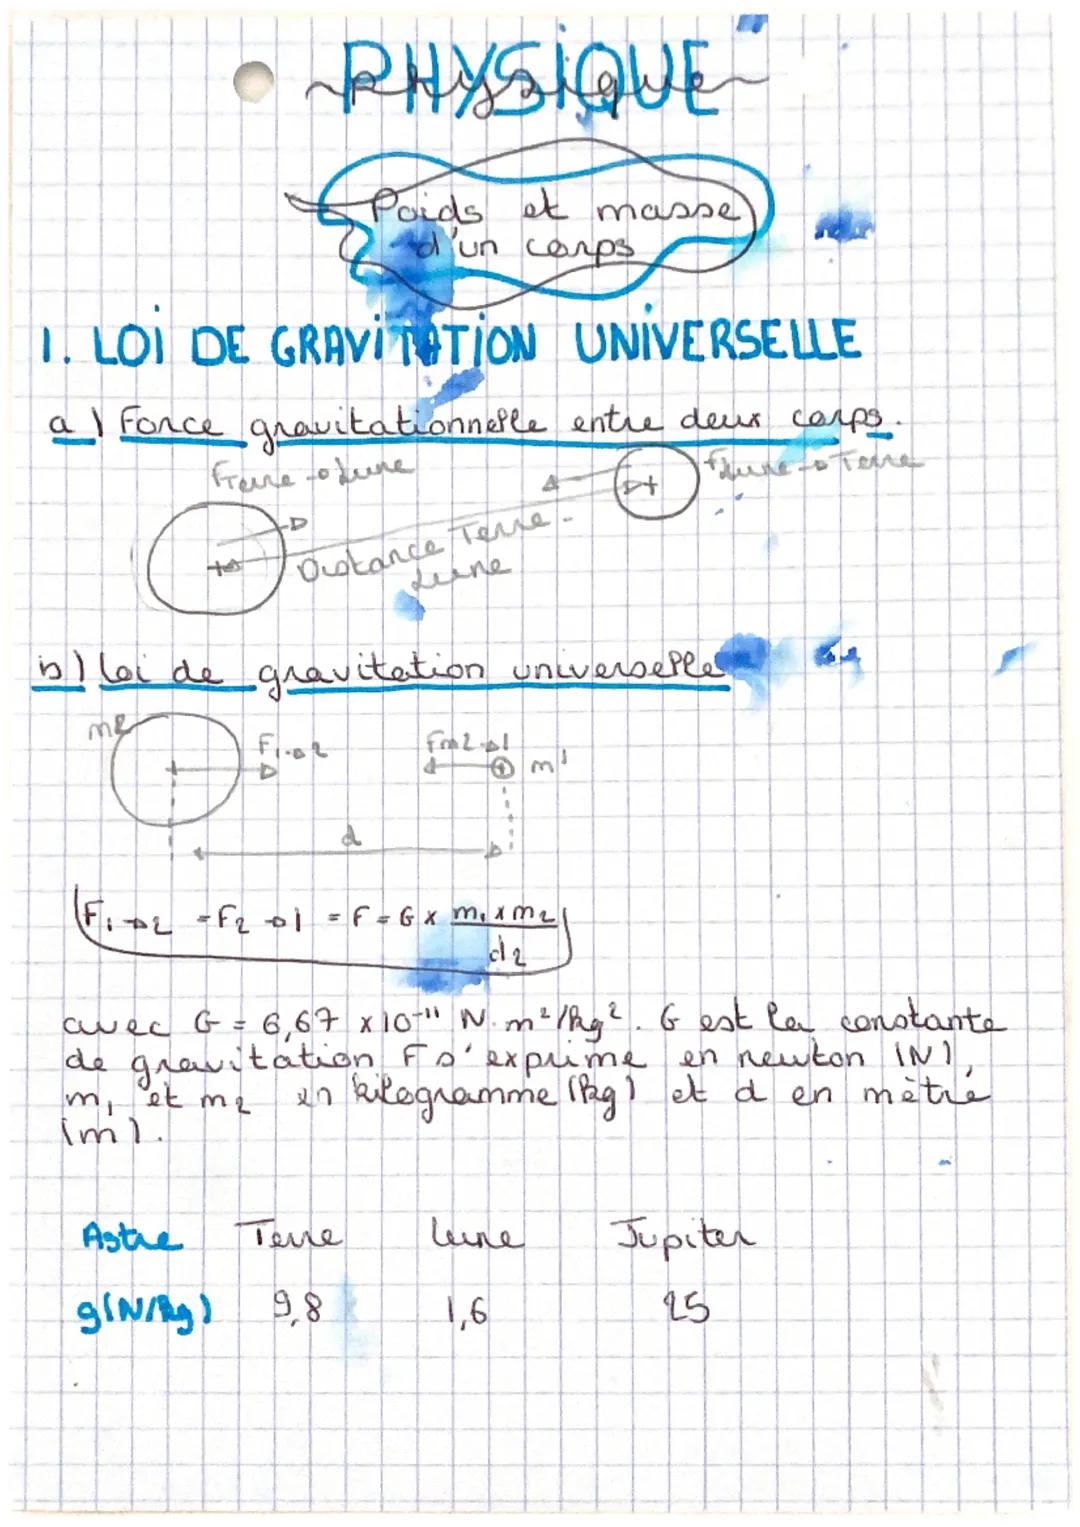 PHYSIQUE
Physique
Poids et masse
d'un corps
1. LOI DE GRAVITATION UNIVERSELLE
a) Force gravitationnelle entre deux corps.
FTerre→Lune
FLune→Terre
Distance Terre-
Lune
b) loi de gravitation universelle
m2
F1→2
Fm2→1
m1
d
F1→2 = F2→1 = F = G x m1 x m2
d2
avec G = 6,67 x10⁻¹¹ N.m²/kg². G est la constante
de gravitation F s'exprime en newton (N),
m1 et m2 en kilogramme (kg) et d en mètre
(m).
Astre Terre Lune Jupiter
g(N/kg) 9,8 1,6 25